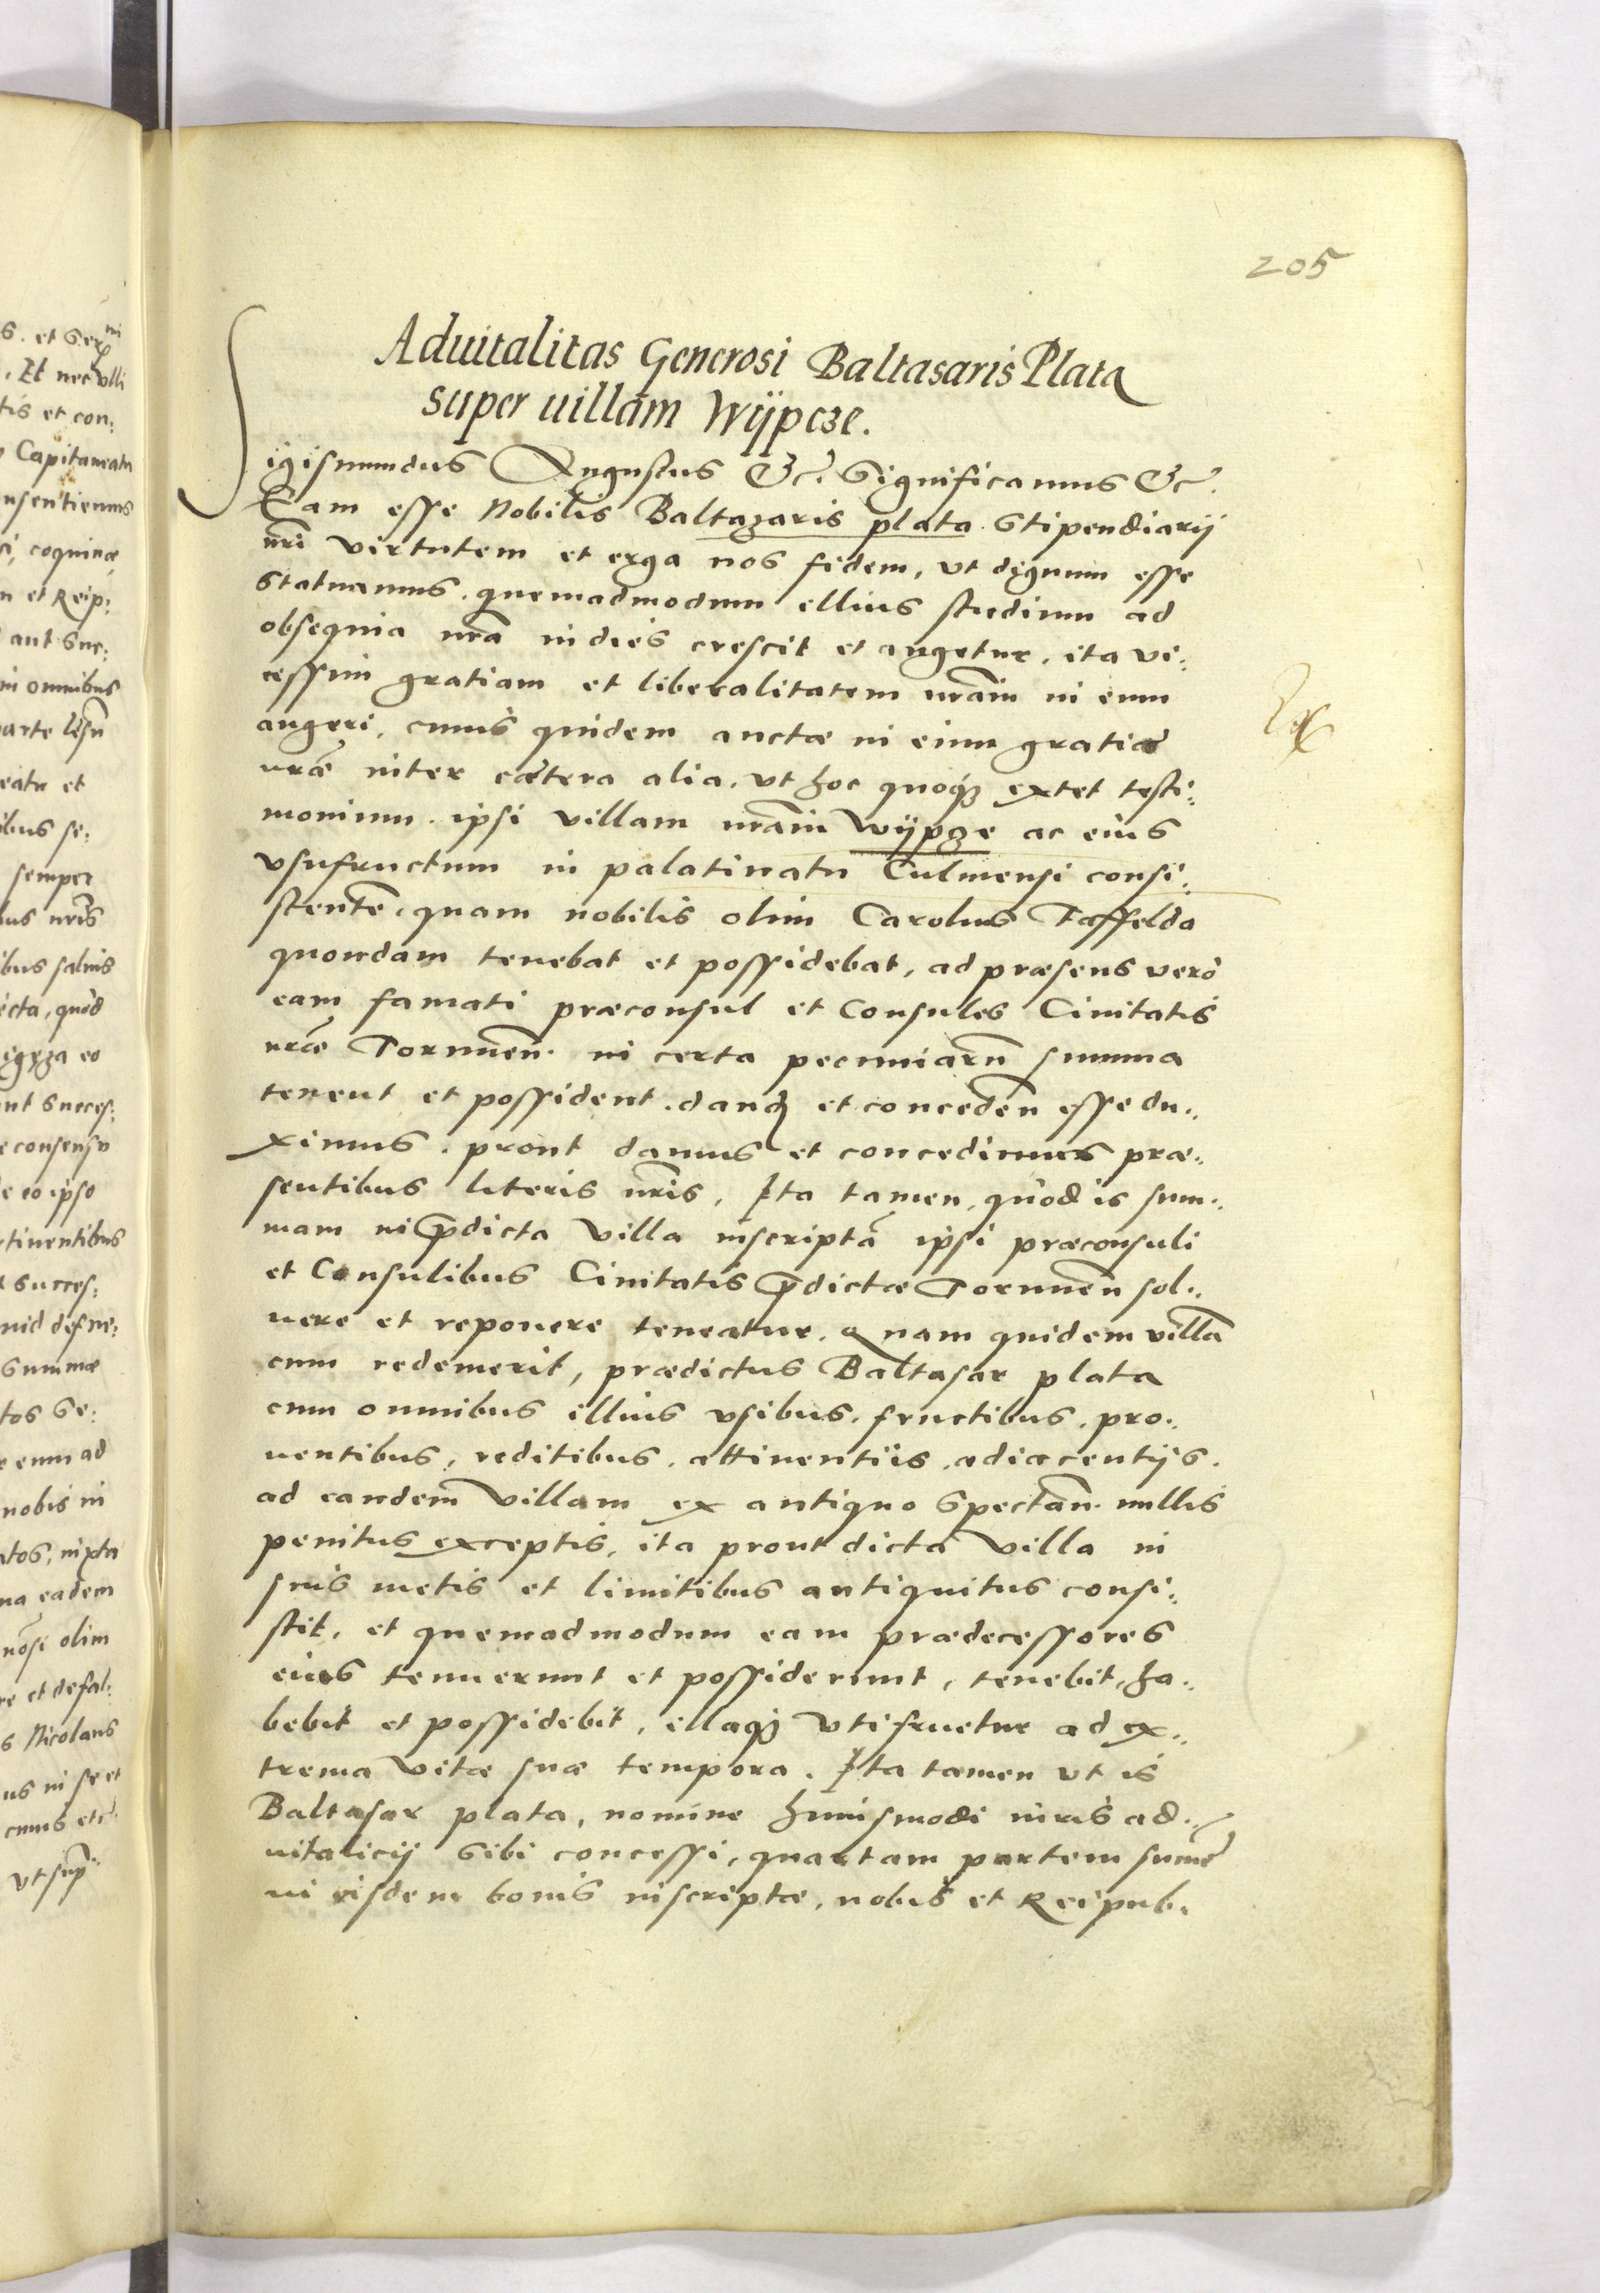 205
Aduitalitas Generosi Baltasaris Plata
super uillam Wÿpcze.
Sigismundus Augustus &c. Significamus &c.
Eam esse Nobilis Baltazaris plata Stipendiarij
nri virtutem et erga nos fidem, vt dignum esse
statuamus. quemadmodum illius studium ad
obsequia nra indies crescit et augetur, ita vi:
cessim gratiam et liberalitatem nram in eum
augeri, cuius quidem auctæ in eum gratiæ
nræ inter cætera alia, vt hoc quoqz extet testi:
monium. ipsi villam nram Wÿpze ac eius
vsufructum in palatinatu Culmensi consi:
stentem, quam nobilis olim Carolus Taffelda
quondam tenebat et possidebat, ad præsens verò
eam famati præconsul et Consules Ciuitatis
nræ Torunen. in certa pecuniarū summa
tenent et possident. dand et conceden esse du:
ximus. prout damus et concedimus præ:
sentibus literis nris, Ita tamen, quòd is sum:
mam in pdicta villa inscriptā ipsi præconsuli
et Consulibus Ciuitatis pdictæ Torunen sol:
uere et reponere teneatur. Quam quidem villā
cum redemerit, prædictus Baltasar plata
cum omnibus illius vsibus. fructibus. pro:
uentibus, reditibus. attinentiis. adiacentijs.
ad eandem villam ex antiquo Spectan. nullis
penitus exceptis, ita prout dicta villa in
suis metis et limitibus antiquitus consi:
stit, et quemadmodum eam prædecessores
eius tenuerunt et possiderunt, tenebit, ha:
bebit et possidebit, illaqz vtifruetur ad ex:
trema vitæ suæ tempora. Ita tamen vt is
Baltasar plata, nomine huiusmodi iuris ad:
uitalicij Sibi concessi, quartam partem sumē
in eisdem bonis inscriptæ, nobis et Reipub.